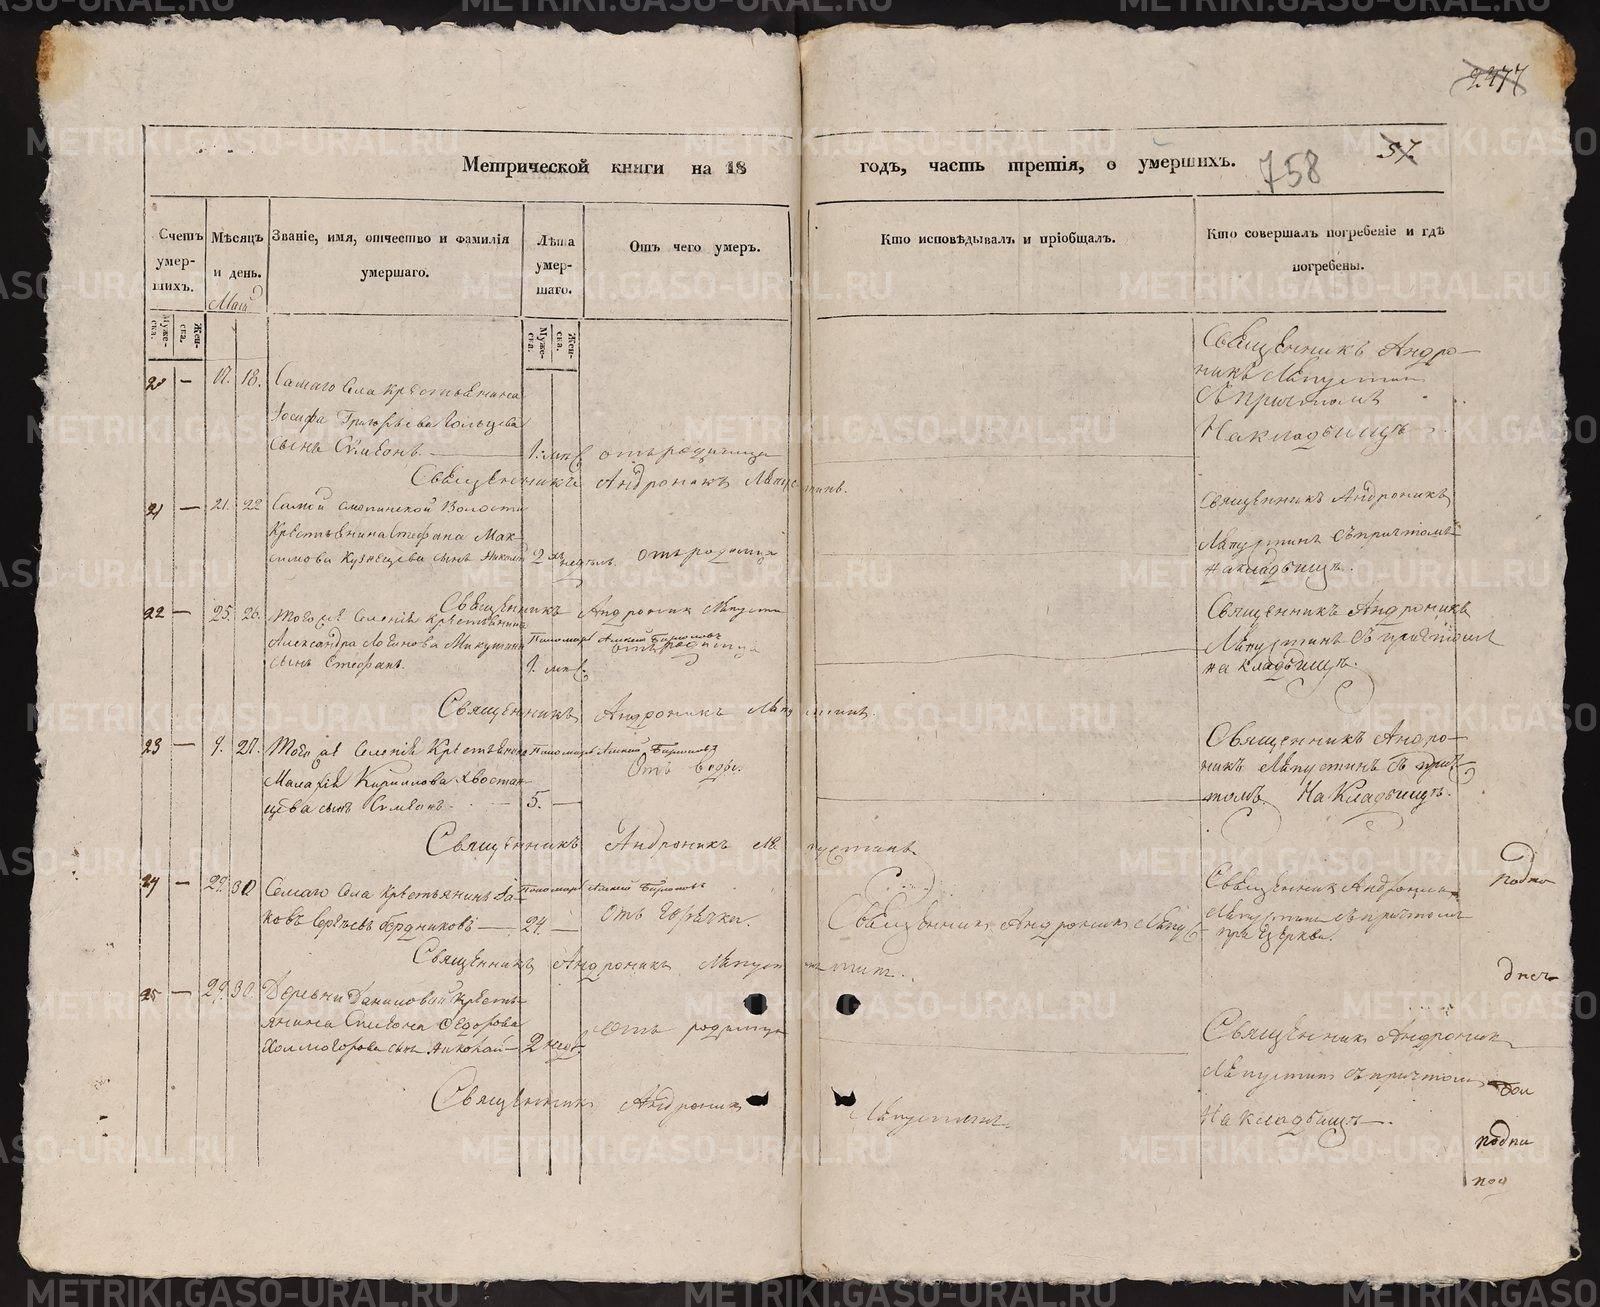 2477
57.
758
Метрической книги на 18 годъ, часть третія, о умершихъ.
Счетъ умер-шихъ.
Муже-ска.
Жен-ска.
Мѣсяцъ и день.
Маій
Званіе, имя, отчество и фамилія умершаго.
Лѣта умер-шаго.
Муже-ска.
Жен-ска.
Отъ чего умер.
Кто исповѣдывалъ и пріобщалъ.
Кто совершалъ погребеніе и гдѣ погребены.
20 — 17. 18. Самаго села крестьянина
Іосифа Григорьева Гольцова
сынъ Сѵмеонъ. — 1. отъ родимца
Священникъ Андроникъ Лѣпустинъ
Съ причтомъ
На кладбищѣ
Священникъ Андроникъ Лѣпустинъ.
21 — 21. 22 Самой Волости
Крестьянина Стефана Мак-
симова Кузнецова сынъ Николай 2 недѣль. отъ родимца
Священникъ Андроникъ
Лѣпустинъ съ причтомъ
на кладбищѣ.
Священникъ Андроникъ Лѣпустинъ
22 — 25. 26. Того же селенія крестьянина
Александра Логинова Микушина
сынъ Стефанъ. 1. отъ родимца
Пономарь
Священникъ Андроникъ
Лѣпустинъ съ причтомъ
на кладбищѣ.
Священникъ Андроникъ Лѣпустинъ.
23 — 9. 27. Того же селенія Крестьянина
Малахія Кириллова Хвостан-
цева сынъ Сѵмеонъ — 5. — Отъ воды.
Пономарь
Священникъ Андро-
никъ Лѣпустинъ съ прич-
томъ. На Кладбищѣ.
Священникъ Андроникъ Лѣпустинъ
24 — 29. 30 Самаго села крестьянинъ Іа-
ковъ Сергѣевъ Бердниковъ — 24. — отъ горячки.
Пономарь
Священникъ Андроникъ Лѣпус-
тинъ.
Священник Андроник
Лѣпустинъ съ причтомъ
при церкви.
Священникъ Андроникъ Лѣпустин
25 — 29. 30. Деревни Даниловой кресть-
янина Симеона Ѳедорова
Холмогорова сынъ Николай — 2 нед. отъ родимца
Священникъ Андроник
Лѣпустинъ съ причтомъ
На кладбищѣ.
Священникъ Андроникъ Лѣпустинъ.
подпи
под
METRIKI.GASO-URAL.RU